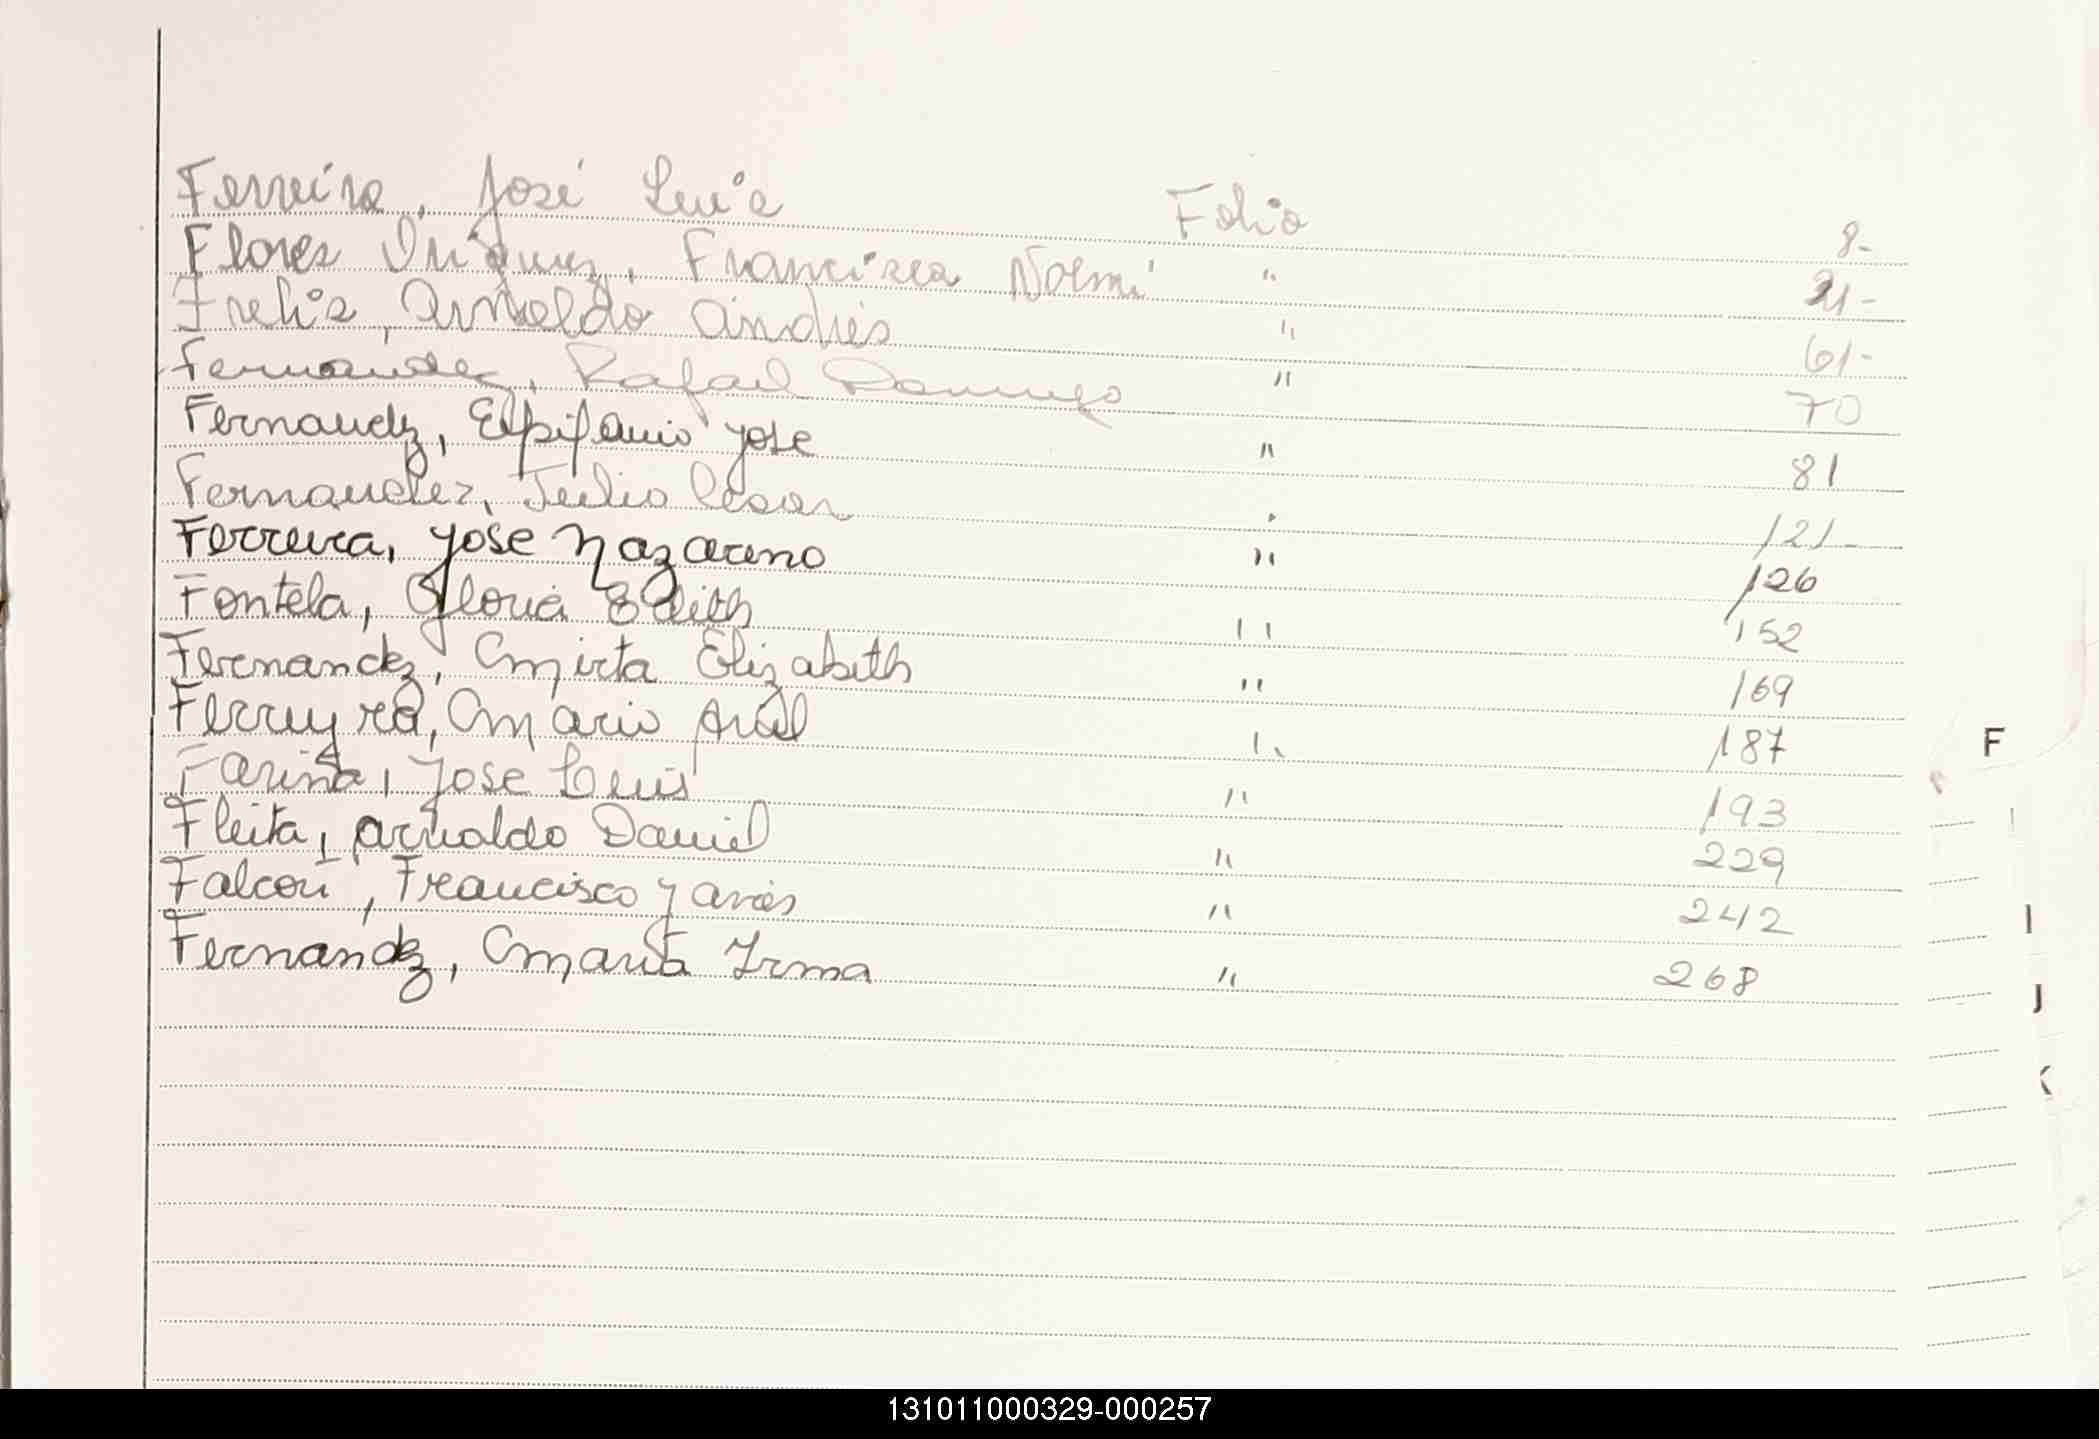 Ferreira, José Luis Folio 8-
Flores Iñiguez, Francisca Noemi " 21-
Frelis, Arnoldo Andrés " 61-
Fernandez, Rafael Domingo " 70
Fernandez, Epifanio Jose " 81
Fernandez, Julio Cesar " 121-
Ferreira, Jose Nazareno " 126
Fontela, Gloria Edith " 152
Fernandez, Mirta Elizabeth " 169
Ferreyra, Mario " 187
Fariña, Jose Luis " 193
F
Fleita, Arnaldo Daniel " 229
Falcon, Francisco Javier " 242
I
Fernandez, Maria Irma " 268
J
K
131011000329-000257